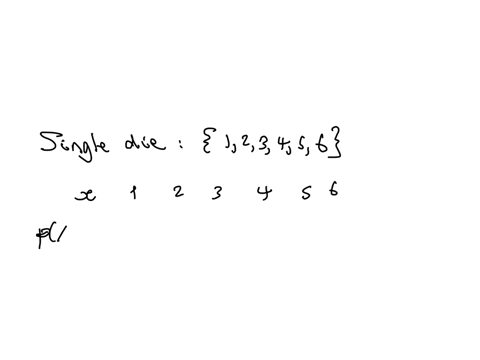 Single die : {1,2,3,4,5,6}
x 1 2 3 4 5 6
p(